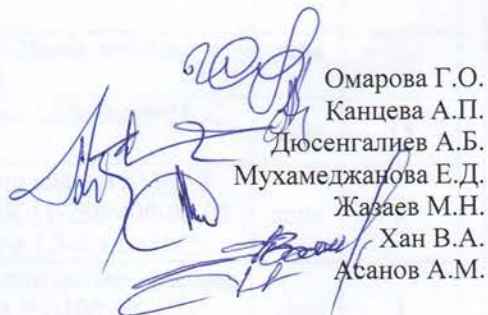 Омарова Г.О.
Канцева А.П.
Дюсенгалиев А.Б.
Мухамеджанова Е.Д.
Жазаев М.Н.
Хан В.А.
Асанов А.М.